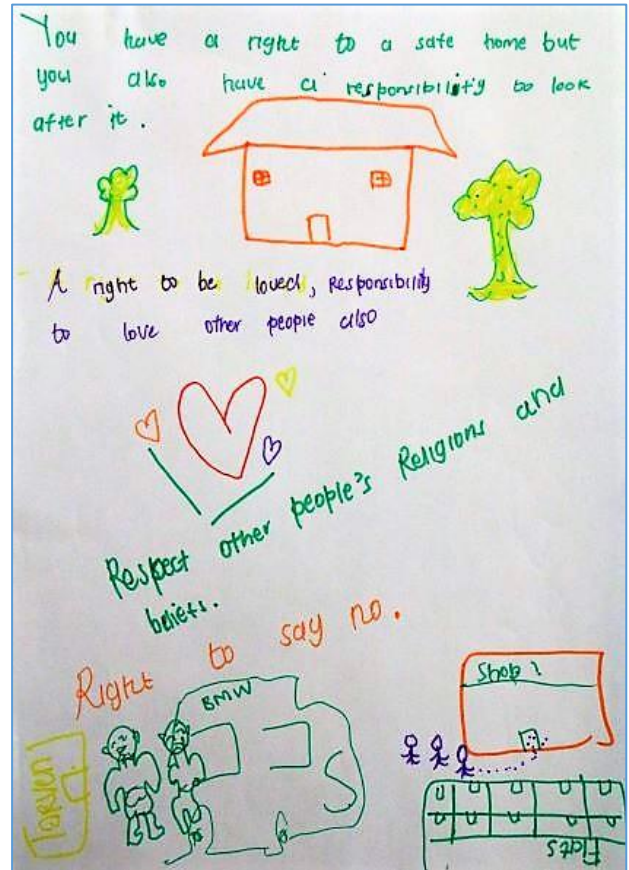 You have a right to a safe home but
you also have a responsibility to look
after it.
A right to be loved, Responsibility
to love other people also
Respect other people's Religions and
beliefs.
Right to say no.
BMW
Shop 1
Tarven
Flats